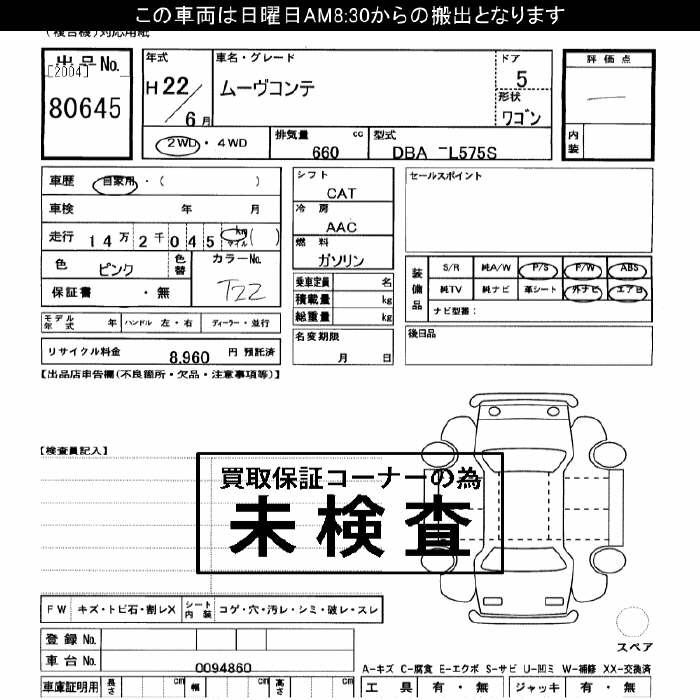 この車両は日曜日AM8:30からの搬出となります
(複合機)対応用紙
出品No.
[2004]
80645
年式
H22/6月
車名・グレード
ムーヴコンテ
ドア
5
形状
ワゴン
評価点
内装
2WD・4WD
排気量 cc
660
型式
DBA -L575S
車歴 自家用・( )
車検 年 月
走行 14万2千045 km マイル ( )
色 ピンク
色替
カラーNo.
T22
保証書 ・無
シフト
CAT
冷房
AAC
燃料
ガソリン
乗車定員 名
積載量 kg
総重量 kg
名変期限
月 日
セールスポイント
装備品
S/R 純A/W P/S P/W ABS
純TV 純ナビ 革シート 外ナビ エアB
ナビ型番:
後日品
モデル年式 年 ハンドル 左・右 ディーラー・並行
リサイクル料金 8,960 円 預託済
【出品店申告欄(不良箇所・欠品・注意事項等)】
【検査員記入】
買取保証コーナーの為
未検査
FW キズ・トビ石・割レX シート内装 コゲ・穴・汚レ・シミ・破レ・スレ
登録No.
車台No. 0094860
スペア
A-キズ C-腐食 E-エクボ S-サビ U-凹ミ W-補修 XX-交換済
車庫証明用 長さ cm 幅 cm 高さ cm
工具 有・無 ジャッキ 有・無